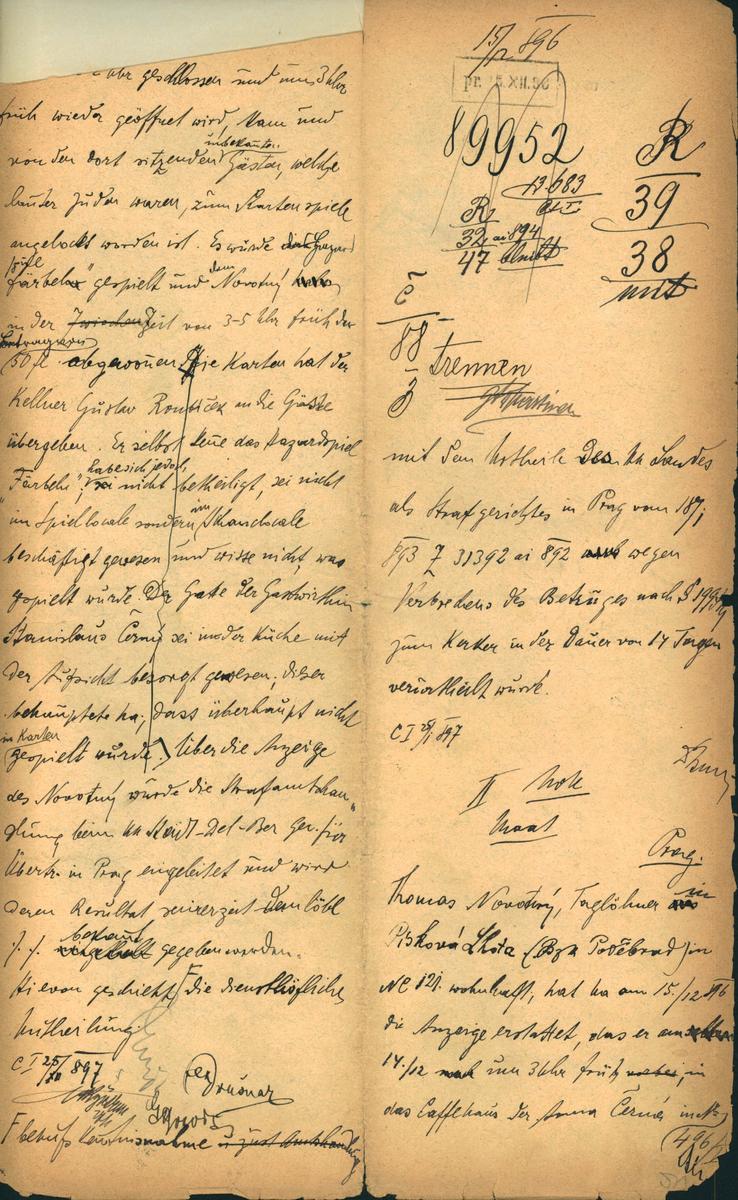 uhr geschlossen und um 3 Uhr
früh wieder geöffnet wird, kam und
unbekannten
von den dort sitzenden Gästen, welche
lauter Juden waren, zum Kartenspiele
angelockt worden ist. Es wurde das Hazard
spiel
"Färbeln" gespielt und dem Novotný
in der Zwischenzeit von 3-5 Uhr früh der
Betrag von
50 fl abgewonnen. Die Karten hat der
Kellner Gustav Roubiček an die Gäste
übergeben. Er selbst kenne das Hazardspiel
habe sich jedoch
"Färbeln", sei nicht betheiligt, sei nicht
im Spiellocale sondern im Schanklocale
beschäftigt gewesen und wisse nicht, was
gespielt wurde. Der Gatte der Gastwirthin
Stanislaus Černý sei in der Küche mit
der Aufsicht besorgt gewesen; dieser
behauptete ha; dass überhaupt nicht
in Karten
gespielt wurde. Über die Anzeige
des Novotný wurde die Strafamtshan-
dlung beim kk Städt-Del-Bez Ger. für
Übertr. in Prag eingeleitet und wird
deren Resultat seinerzeit dem löbl
bekannt
%. gegeben werden.
Hievon geschieht die diensthöfliche
Mittheilung.
C I 25/XII 897
behufs Kenntnisnahme u zust Amtshandlung
15/12 896
pr. 15.XII.96
89952
R
39
38
13683
R
32 ai 894
47
č
88
3
trennen
mit dem Urtheile des kk Landes
als Strafgerichtes in Prag vom 18/1
893 Z 31392 ai 892 wegen
Verbrechens des Betruges nach § 199
zum Kerker in der Dauer von 14 Tagen
verurtheilt wurde.
II Note
Prag.
Thomas Novotný, Taglöhner in
Písková Lhota (Bzk Poděbrad) in
NC 121 wohnhaft, hat ha am 15./12 896
die Anzeige erstattet, das er am
14./12 um 3 Uhr früh, in
das Caffehaus der Anna Černá in No
496/I